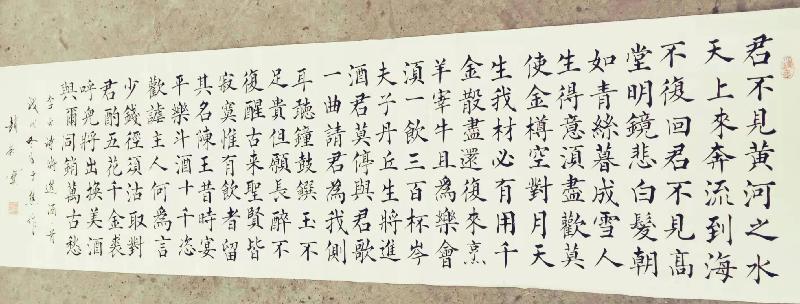 君不見黃河之水
天上來奔流到海
不復回君不見髙
堂明鏡悲白髮朝
如青絲暮成雪人
生得意湏盡歡莫
使金樽空對月天
生我材必有用千
金散盡還復來烹
羊宰牛且為樂會
湏一飲三百杯岑
夫子丹丘生將進
酒君莫停與君歌
一曲請君為我側
耳聽鐘鼓饌玉不
足貴但願長醉不
復醒古来聖賢皆
寂寞惟有飲者留
其名陳王昔時宴
平樂斗酒十千恣
歡謔主人何為言
少錢徑湏沽取對
君酌五花千金裘
呼兒將出換美酒
與爾同銷萬古愁
李白詩將進酒